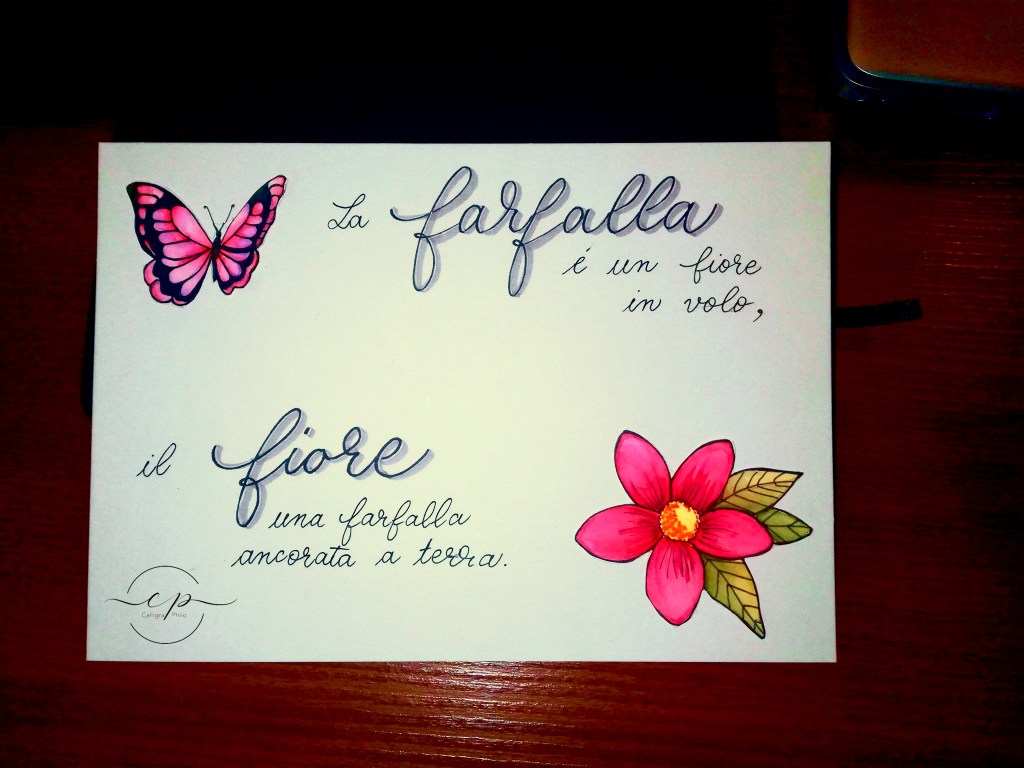 La farfalla
é un fiore
in volo,
il fiore
una farfalla
ancorata a terra.
cp
Calligra Philip